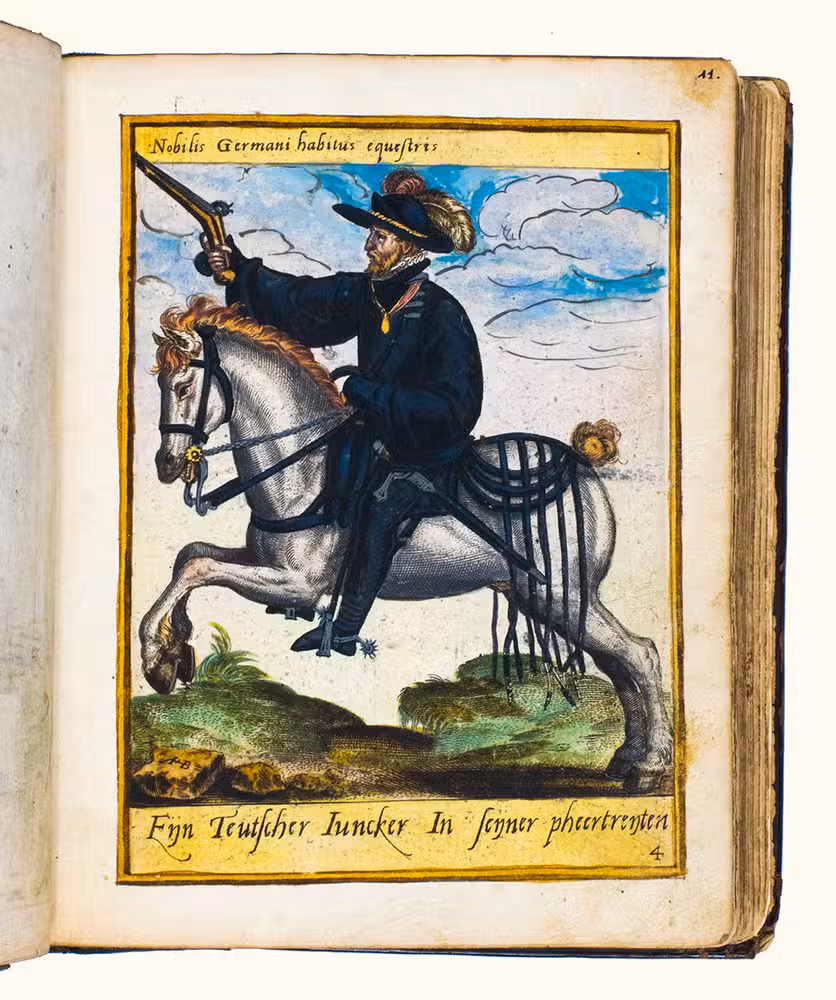 11.
Nobilis Germani habitus equeſtris
AB
Eijn Teutſcher Iuncker In ſeijner pheertreyten
4